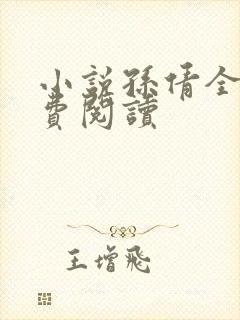 小說孫倩全
費閱讀
王增飛